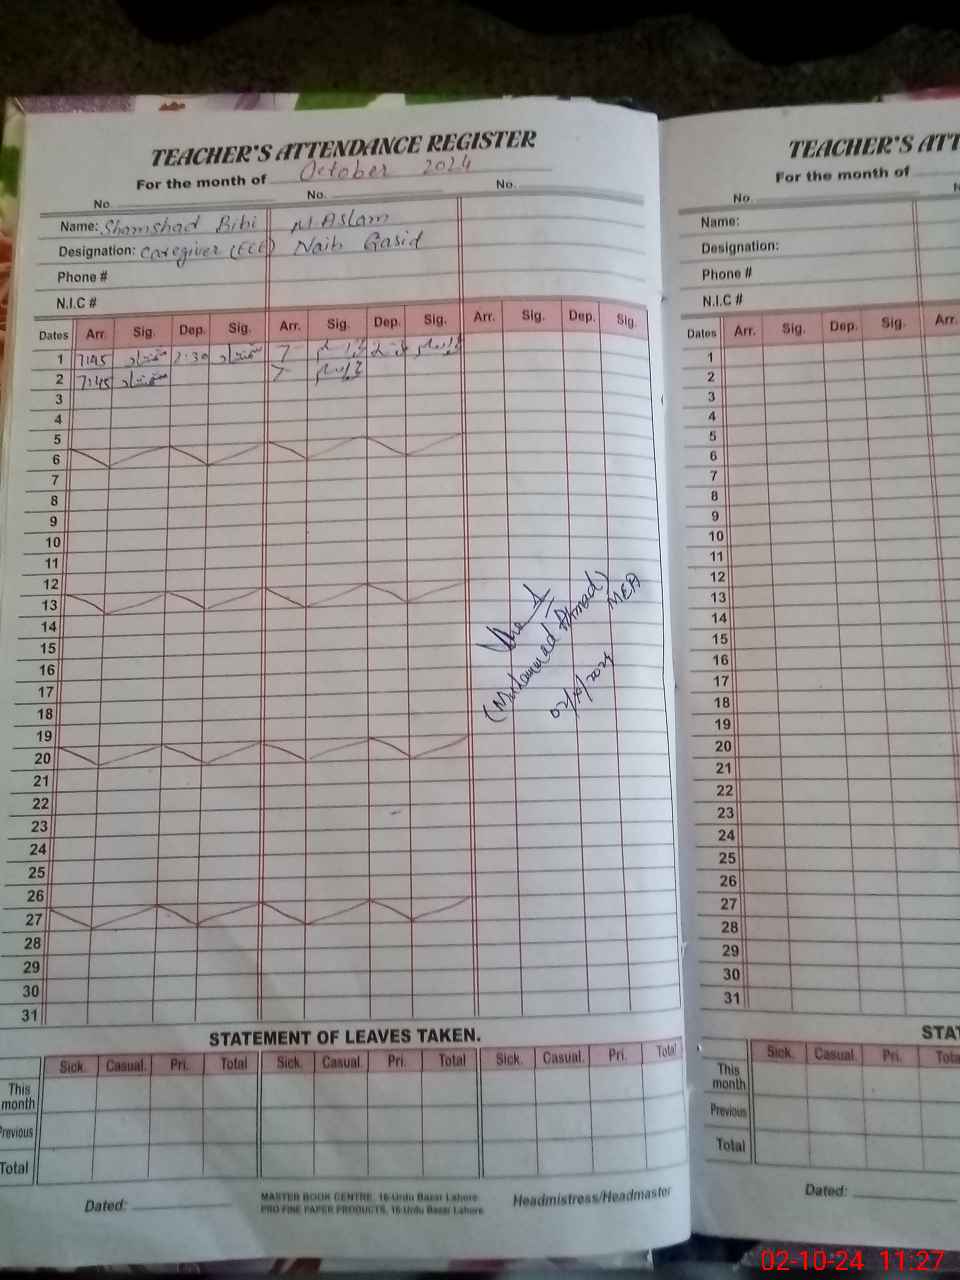 TEACHER'S ATTENDANCE REGISTER
For the month of October 2024
No. No. No.
Name: Shamshad Bibi M. Aslam
Designation: Caregiver (ECE) Naib Qasid
Phone #
N.I.C #
Dates Arr. Sig. Dep. Sig. Arr. Sig. Dep. Sig. Arr. Sig. Dep. Sig.
1 7:45 شمشاد 1:30 شمشاد 7
2 7:45 شمشاد 7
3
4
5
6
7
8
9
10
11
12
13
14
15
16
17
18
19
20
21
22
23
24
25
26
27
28
29
30
31
(Muhammad Ahmad)
MEA
02/10/2024
STATEMENT OF LEAVES TAKEN.
Sick. Casual. Pri. Total Sick. Casual Pri. Total Sick. Casual. Pri. Total
This month
Previous
Total
Dated:
MASTER BOOK CENTRE, 16-Urdu Bazar Lahore
PRO FINE PAPER PRODUCTS, 16-Urdu Bazar Lahore
Headmistress/Headmaster
TEACHER'S ATT
For the month of
No.
Name:
Designation:
Phone #
N.I.C #
Dates Arr. Sig. Dep. Sig. Arr.
1
2
3
4
5
6
7
8
9
10
11
12
13
14
15
16
17
18
19
20
21
22
23
24
25
26
27
28
29
30
31
STA
Sick. Casual. Pri. Tota
This month
Previous
Total
Dated:
02-10-24 11:27